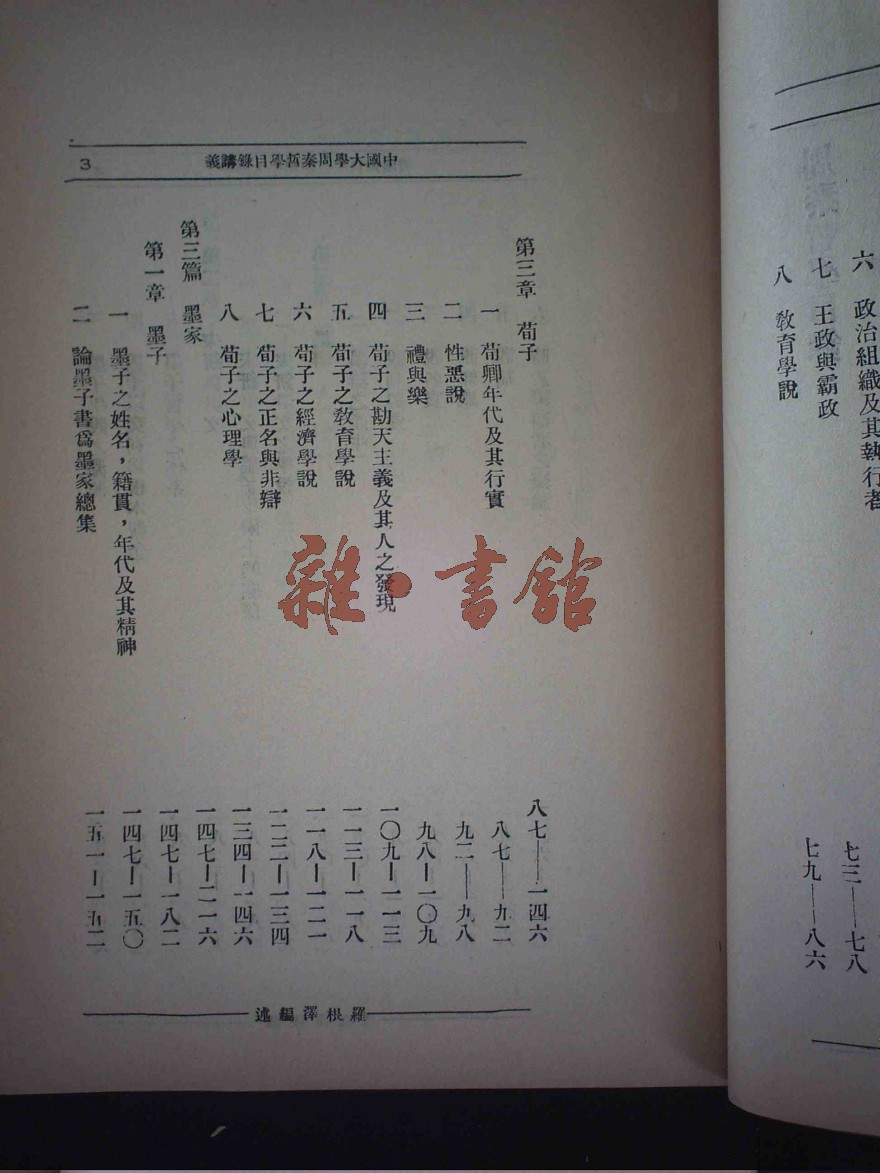 六　政治組織及其執行者　七三——七八
七　王政與霸政　七九——八六
八　敎育學說
中國大學周秦哲學目錄講義　3
第三章　荀子　八七——一四六
一　荀卿年代及其行實　八七——九二
二　性惡說　九二——九八
三　禮與樂　九八—一〇九
四　荀子之勘天主義及其人之發現　一〇九—一一三
五　荀子之敎育學說　一一三—一一八
六　荀子之經濟學說　一一八—一二一
七　荀子之正名與非辯　一二二—一三四
八　荀子之心理學　一三四—一四六
第三篇　墨家　一四七—二一六
第一章　墨子　一四七—一八二
一　墨子之姓名，籍貫，年代及其精神　一四七—一五〇
二　論墨子書爲墨家總集　一五一—一五二
羅根澤編述
雜·書館